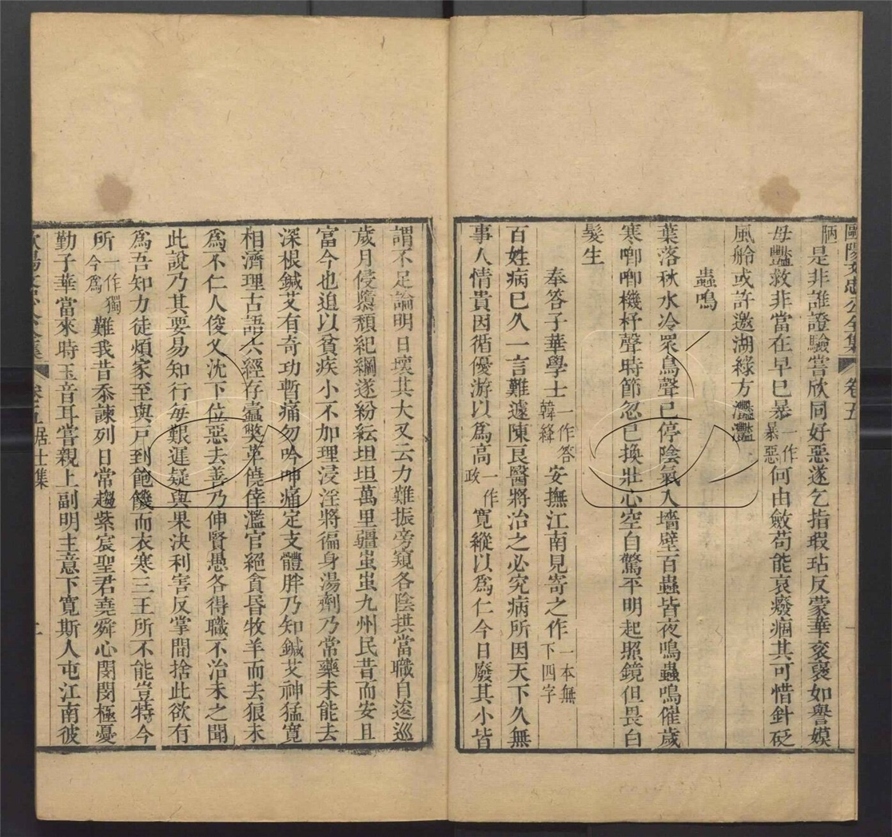 歐陽文忠公全集 卷五
陋是非誰證驗嘗欣同好惡遂乞指瑕玷反蒙華衮襃如譽嫫
母豔救非當在早已暴一作暴惡何由斂苟能哀癈痼其可惜針砭
風舲或許邀湖綠方灔灔
蟲鳴
葉落秋水冷眾鳥聲已停陰氣入墻壁百蟲皆夜鳴蟲鳴催歲
寒唧唧機杼聲時節忽已換壯心空自驚平明起照鏡但畏白
髮生
奉答子華學士一作答韓絳安撫江南見寄之作一本無下四字
百姓病已久一言難遽陳良醫將治之必究病所因天下久無
事人情貴因循優游以為高一作政寬縱以為仁今日廢其小皆
謂不足論明日壞其大又云力難振旁窺各陰拱當職自逡巡
歲月侵隳頹紀綱遂紛紜坦坦萬里疆蚩蚩九州民昔而安且
富今也迫以貧疾小不加理浸淫將徧身湯劑乃常藥未能去
深根鍼艾有奇功暫痛勿吟呻痛定支體胖乃知鍼艾神猛寬
相濟理古語六經存蠹獘革僥倖濫官絕貪昬牧羊而去狼未
為不仁人俊乂沈下位惡去善乃伸賢愚各得職不治未之聞
此說乃其要易知行每艱遲疑與果決利害反掌間捨此欲有
為吾知力徒煩家至與戶到飽饑而衣寒三王所不能豈特今
所一作獨今為難我昔忝諫列日常趨紫宸聖君堯舜心閔閔極憂
勤子華當來時玉音耳嘗親上副明主意下寬斯人屯江南彼
歐陽文忠公全集 卷五 居士集 二